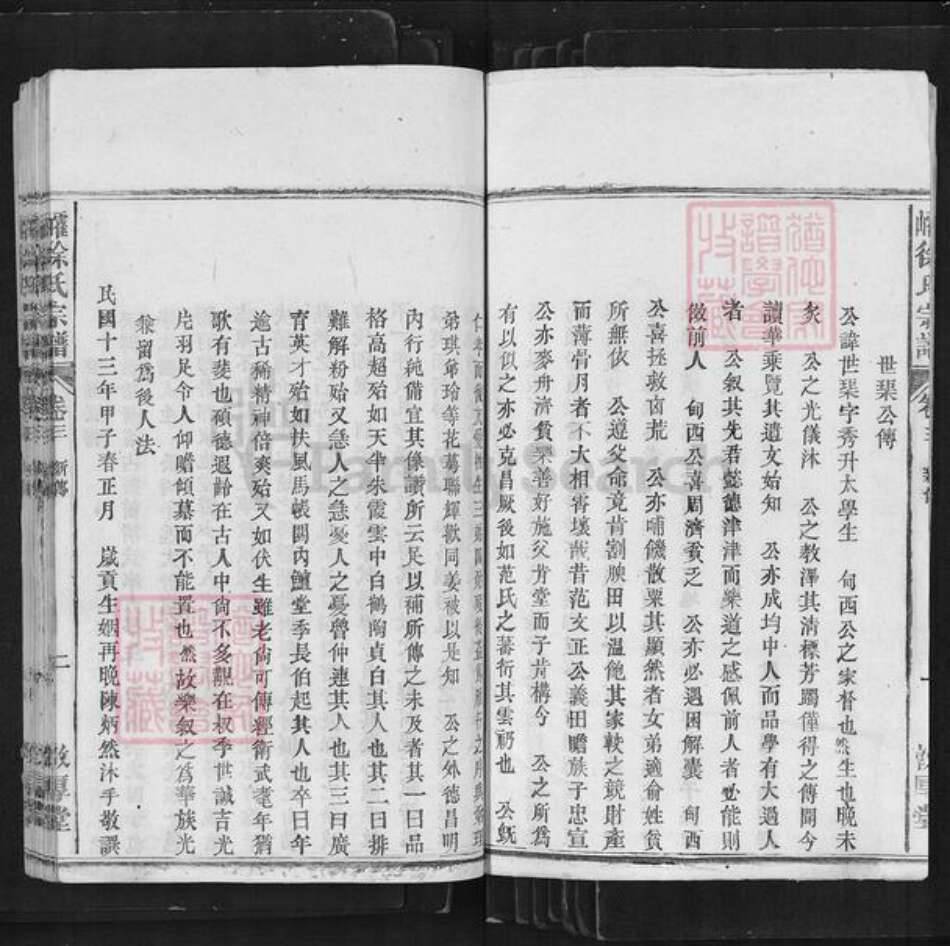 世琹公傳
公諱世琹字秀升太學生 甸西公之家督也然生也晚未
炙 公之光儀沐 公之教澤其清標芳躅僅得之傳聞今
讀華乘覽其遺文始知 公亦成均中人而品學有大過人
者 公叙其先君懿德津津而樂道之感佩前人者必能則
傚前人 甸西公喜周濟貧乏 公亦必遇困解囊 甸西
公喜拯救凶荒 公亦哺饑散粟其顯然者女弟適俞姓貧
所無依 公遵父命竟肯割腴田以温飽其家較之競財產
而薄骨月者不大相霄壤哉昔范文正公義田贍族子忠宣
公亦麥舟濟貧樂善好施父肯堂而子肯構今 公之所為
有以似之亦必克昌厥後如范氏之蕃衍其雲礽也 公既
弟琪笰玲等花萼聯輝歡同姜被以是知 公之外德昌明
內行純備宜其像讚所云足以補所傳之未及者其一曰品
格高超殆如天半朱霞雲中白鶴陶貞白其人也其二曰排
難解粉殆又急人之急憂人之憂魯仲連其人也其三曰廣
育英才殆如扶風馬帳關內鱣堂季長伯起其人也卒日年
逾古稀精神倍爽殆又如伏生雖老尚可傳經衛武耄年猶
歌有斐也碩德遐齡在古人中尚不多覯在叔季世誠吉光
片羽足令人仰瞻傾慕而不能置也然故樂叙之為華族光
兼留為後人法
民國十三年甲子春正月 歲貢生姻再晚陳炳然沐手敬譔
徐氏宗譜 卷三 新傳 二 敦厚堂